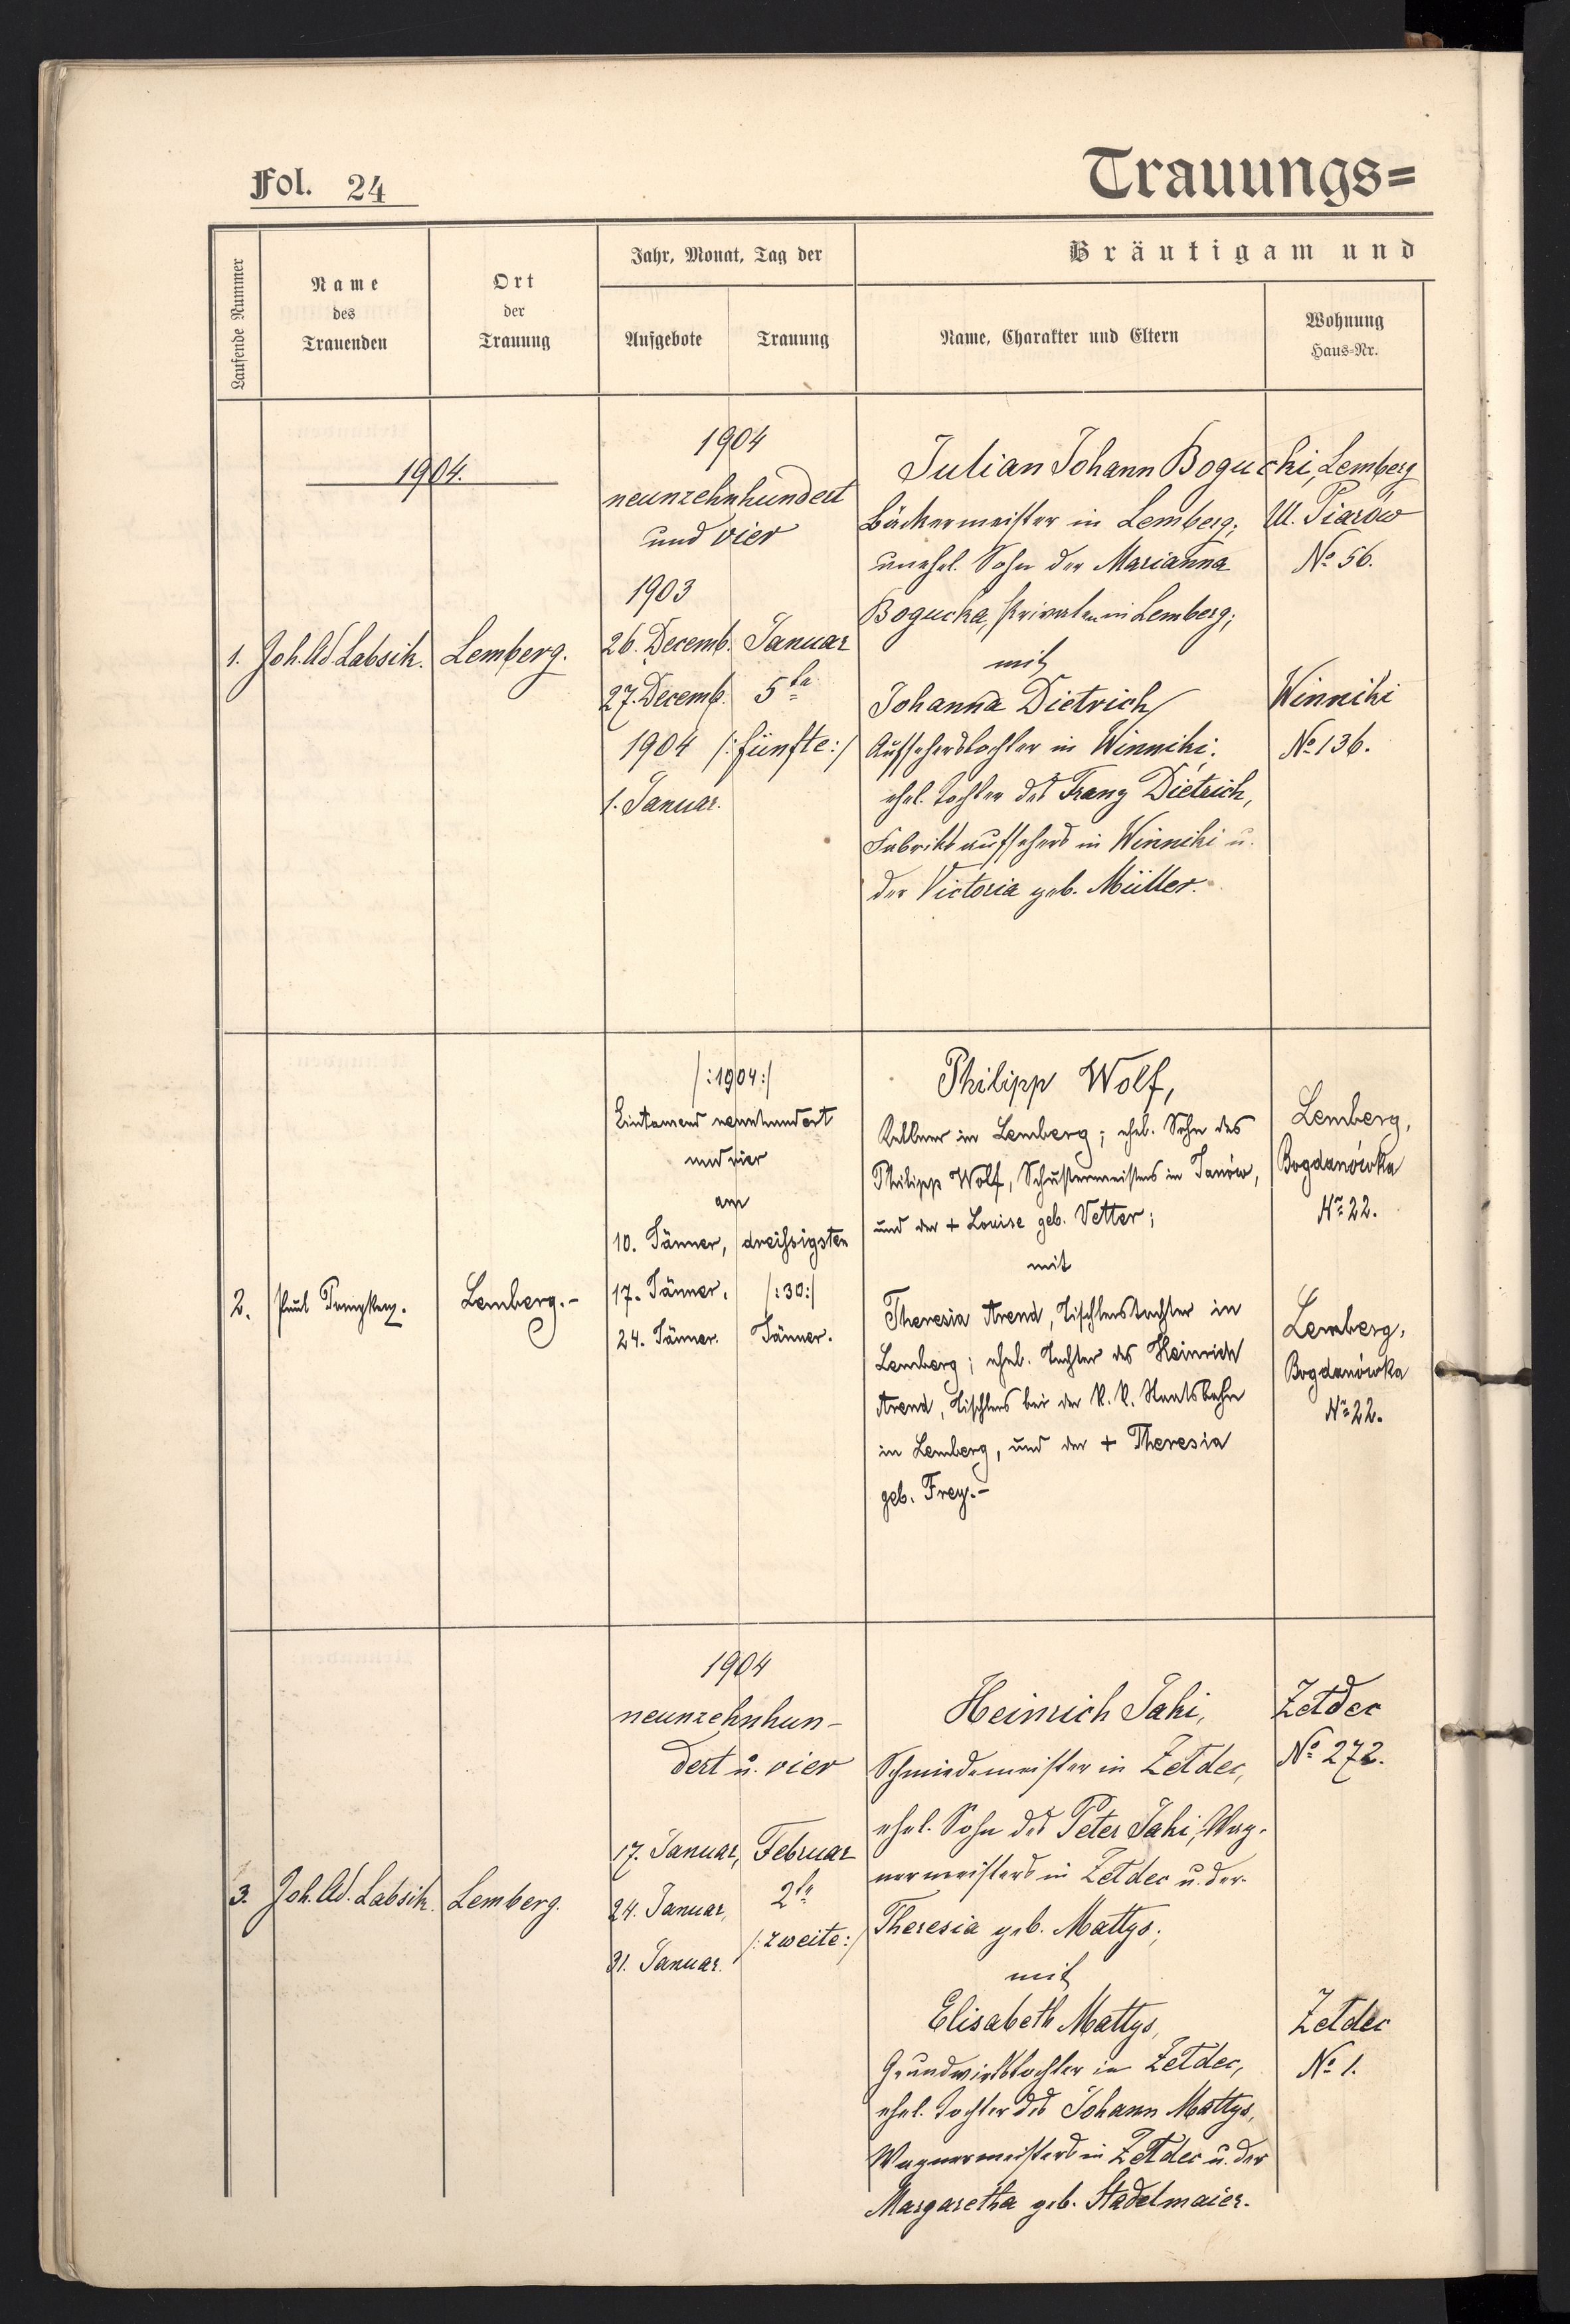 Fol. 24
Trauungs=
Laufende Nummer
Name
des
Trauenden
Ort
der
Trauung
Jahr, Monat, Tag der
Aufgebote
Trauung
Bräutigam und
Name, Charakter und Eltern
Wohnung
Haus-Nr.
1904.
1.
Joh. Ad. Labsik.
Lemberg.
1904
neunzehnhundert
und vier
1903
26. Decemb.
27. Decemb.
1904
1. Januar.
Januar
5te
/:fünfte:/
Julian Johann Bogucki,
Bäckermeister in Lemberg;
unehel. Sohn der Marianna
Bogucka, Private in Lemberg;
mit
Johanna Dietrich
Aufseherstochter in Winniki;
ehel. Tochter des Franz Dietrich,
Fabriksaufsehers in Winniki u.
der Victoria geb. Müller.
Lemberg
Ul. Piarów
No 56.
Winniki
No 136.
2.
Paul
Lemberg.-
/:1904:/
Eintausend neunhundert
und vier
am
10. Jänner,
17. Jänner,
24. Jänner.
dreißigsten
/:30:/
Jänner.
Philipp Wolf,
Kellner in Lemberg; ehel. Sohn des
Philipp Wolf, Schustermeisters in Janów,
und der + Louise geb. Vetter;
mit
Theresia Arend, Tischlerstochter in
Lemberg; ehel. Tochter des Heinrich
Arend, Tischlers bei der k. k. Staatsbahn
in Lemberg, und der + Theresia
geb. Frey.-
Lemberg,
Bogdanówka
No 22.
Lemberg,
Bogdanówka
No 22.
3.
Joh. Ad. Labsik.
Lemberg.
1904
neunzehnhun-
dert u. vier
17. Januar,
24. Januar,
31. Januar.
Februar
2te
/:zweite:/
Heinrich Jaki,
Schmiedemeister in Zeldec,
ehel. Sohn des Peter Jaki, Wag-
nermeisters in Zeldec u. der
Theresia geb. Mattys;
mit
Elisabeth Mattys,
Grundwirtstochter in Zeldec,
ehel. Tochter des Johann Mattys,
Wagnermeisters in Zeldec u. der
Margaretha geb. Stadelmaier.
Zeldec
No 272.
Zeldec
No 1.